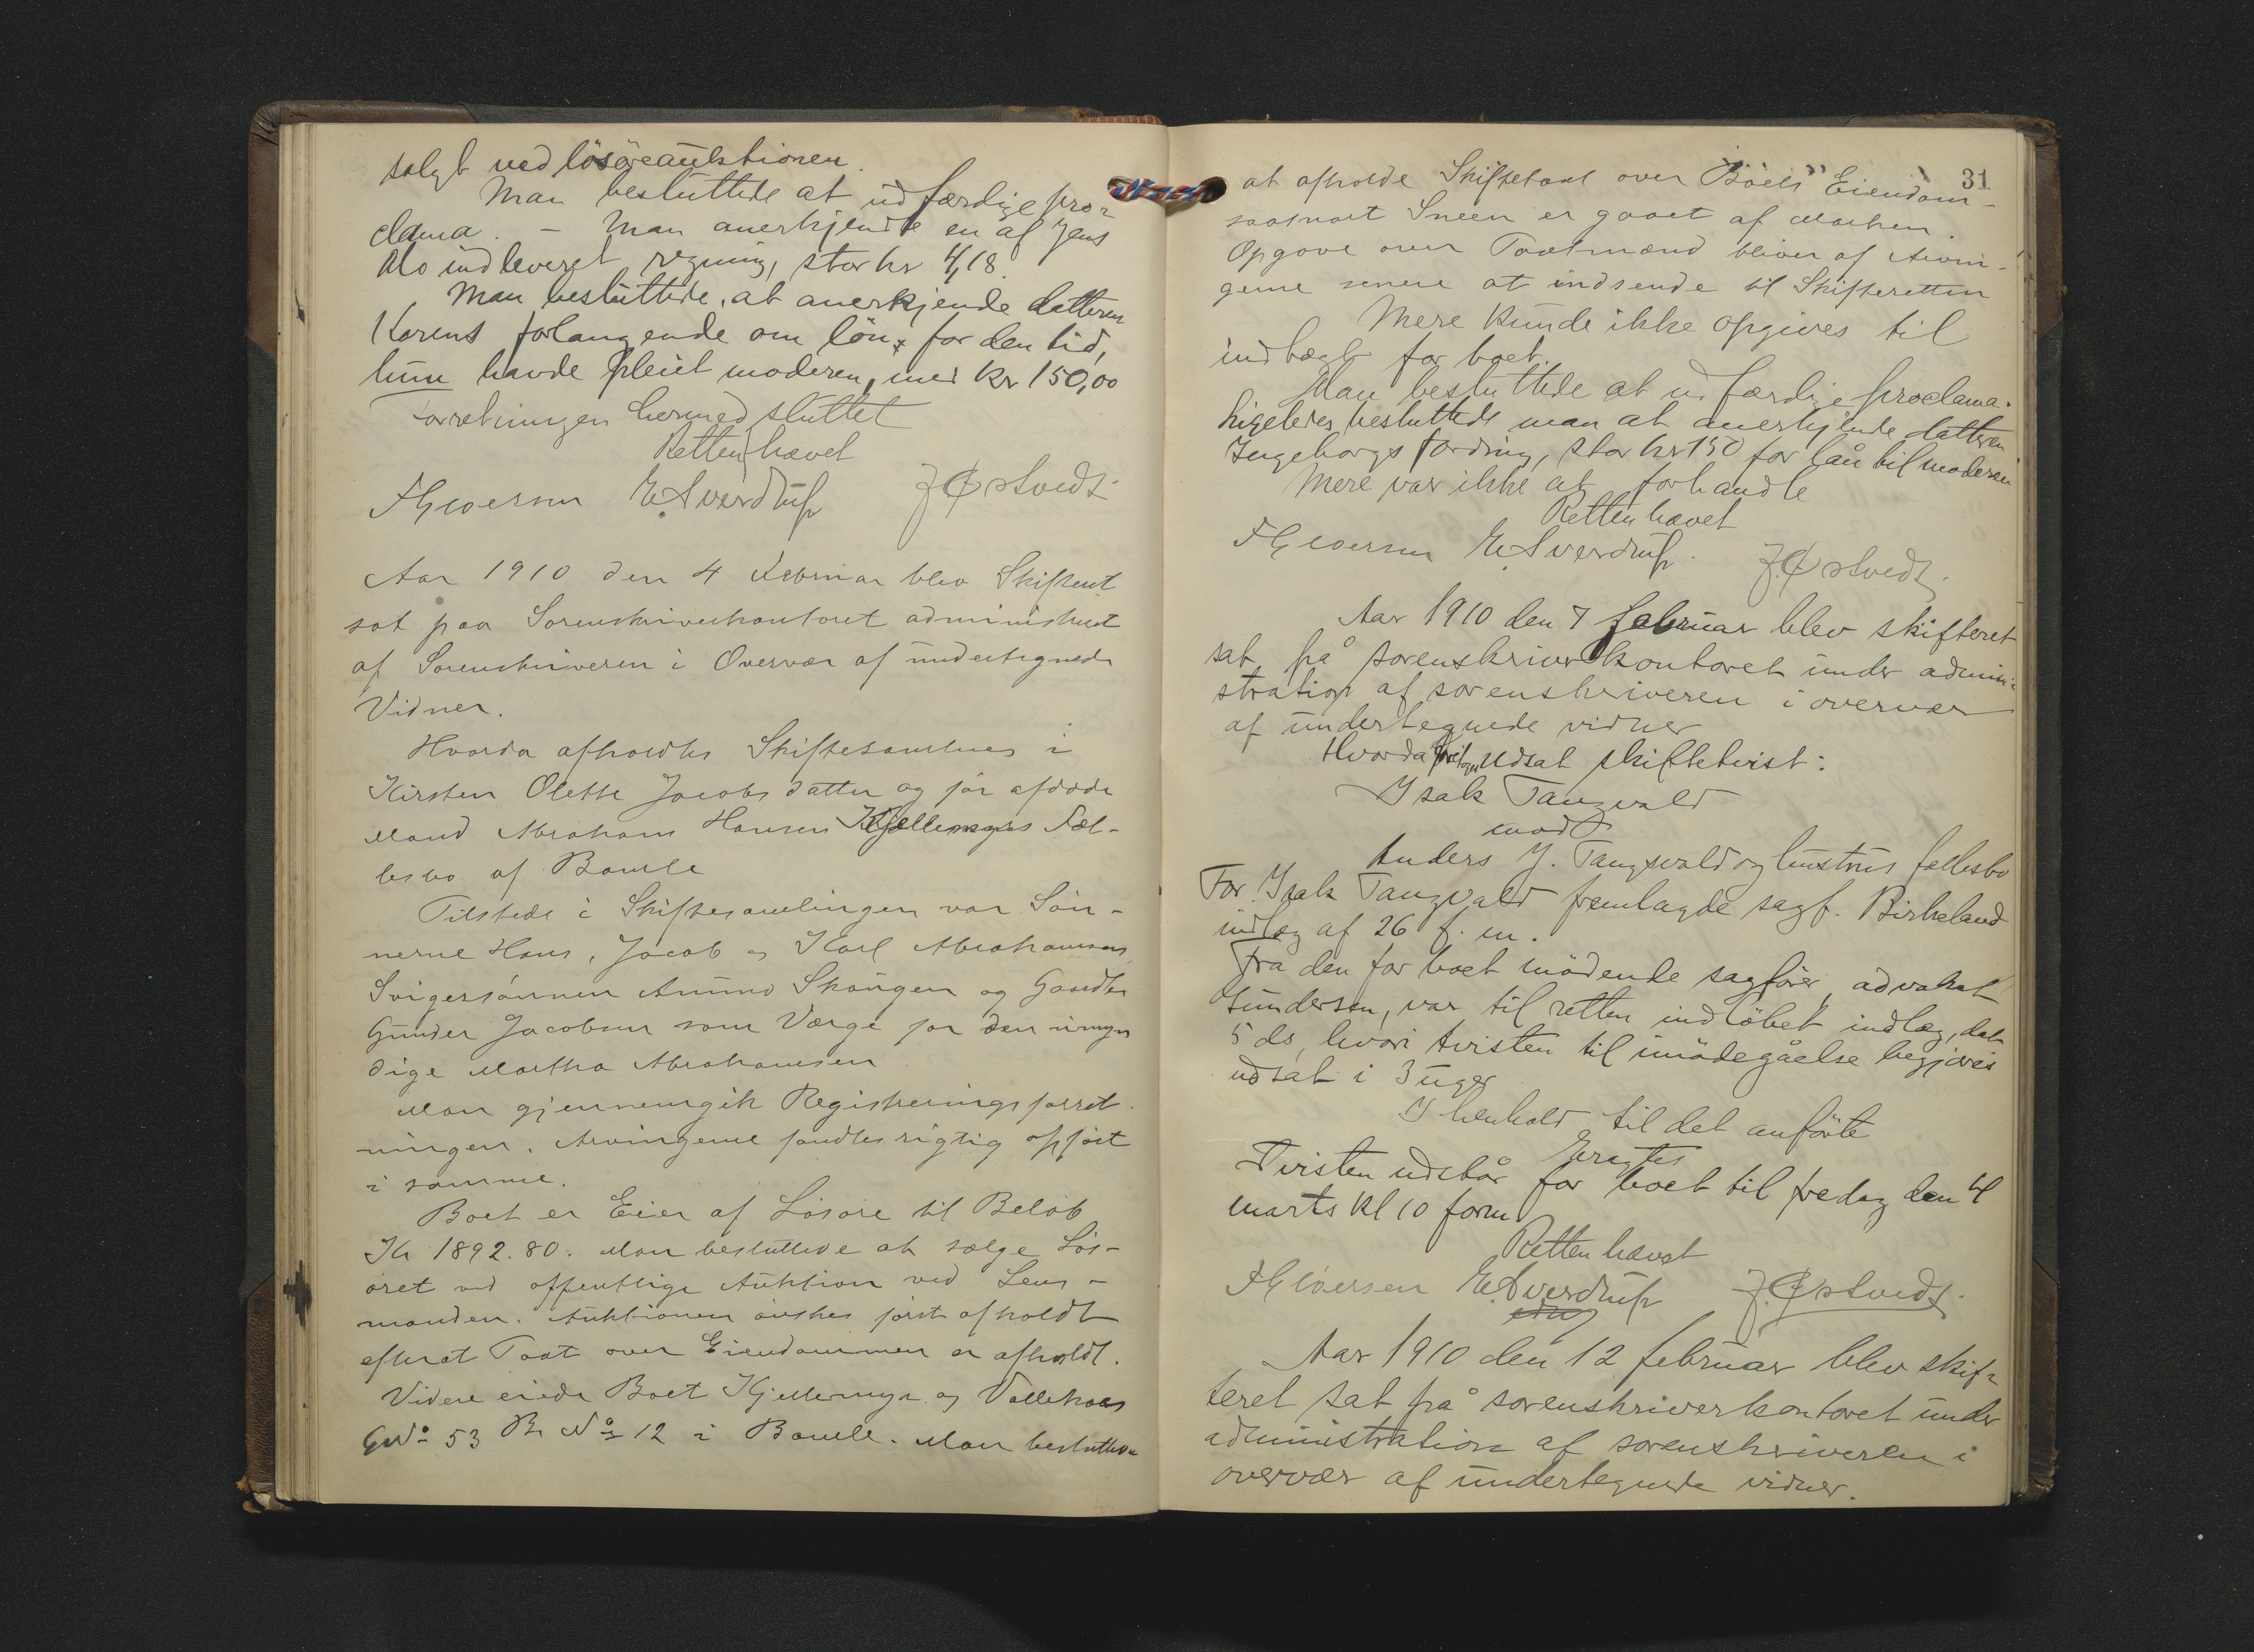 solgt ved lösöreauktionen.
Man besluttede at udfærdige pro-
clama. – Man anerkjendte en af Jens
Alo indleveret regning, stor kr 4,18.
Man besluttede, at anerkjende datteren
Karens forlangende om lön for den tid,
hun havde pleiet moderen, med kr 150,00
Forretningen hermed sluttet
Retten hævet
E. Sverdrup J Østvedt
Aar 1910 den 4 Februar blev Skifteret
sat paa Sorenskriverkontoret administreret
af Sorenskriveren i Overvær af undertegnede
Vidner.
Hvorda afholdtes Skiftesamling i
Kirsten Olette Jacobsdatter og før afdøde
Mand Abraham Hansen Kjellemyrs Fæl-
lesbo af Bamle
Tilstede i Skiftesamlingen var Søn-
nerne Hans, Jacob og Karl Abrahamsen,
Svigersønnen Anund Skaugen og Gaardbr
Gunder Jacobsen som Værge for den umyn
dige Martha Abrahamsen
Man gjennemgik Registreringsforret-
ningen. Arvingerne fandtes rigtig opført
i samme.
Boet er Eier af Løsøre til Beløb
Kr 1892.80. Man besluttede at sælge Løs-
øret ved offentlige Auktion ved Lens-
manden. Auktionen ønskes først afholdt
efterat Taxt over Eiendommen er afholdt.
Videre eiede Boet Kjellemyr og
GNo 53 Br No 12 i Bamle. Man besluttede
31
at afholde Skiftetaxt over Boets Eiendom-
saasnart Sneen er gaaet af Marken.
Opgave over Taxtmænd bliver af Arvin-
gerne senere at indsende til Skifteretten
Mere kunde ikke opgives til
indtægt for boet.
Man besluttede at udfærdige proclama.
Ligeledes besluttede man at anerkjende datteren
Ingeborgs fordring, stor kr 150 for lån til moderen
Mere var ikke at forhandle
Retten hævet
E. Sverdrup. J. Østvedt.
Aar 1910 den 7 februar blev skifteret
sat på sorenskriverkontoret under admini-
stration af sorenskriveren i overvær
af undertegnede vidner
Hvorda foretoges udsat skiftetvist:
Isak Tangvald
mod
Anders J. Tangvald og hustrus fællesbo
For Isak Tangvald fremlagde sagf. Birkeland
indlæg af 26 f. m.
Fra den for boet mödende sagförer, advokat
Gundersen, var til retten indlöbet indlæg, dat
5 ds, hvori tvisten til imödegåelse begjæres
udsat i 3 uger
I henhold til det anförte
eragtes
Tvisten udstår for boet til fredag den 4
marts kl 10 form
Retten hævet
E. Sverdrup J. Østvedt.
Aar 1910 den 12 februar blev skif-
teret sat på sorenskriverkontoret under
administration af sorenskriveren i
overvær af undertegnede vidner.